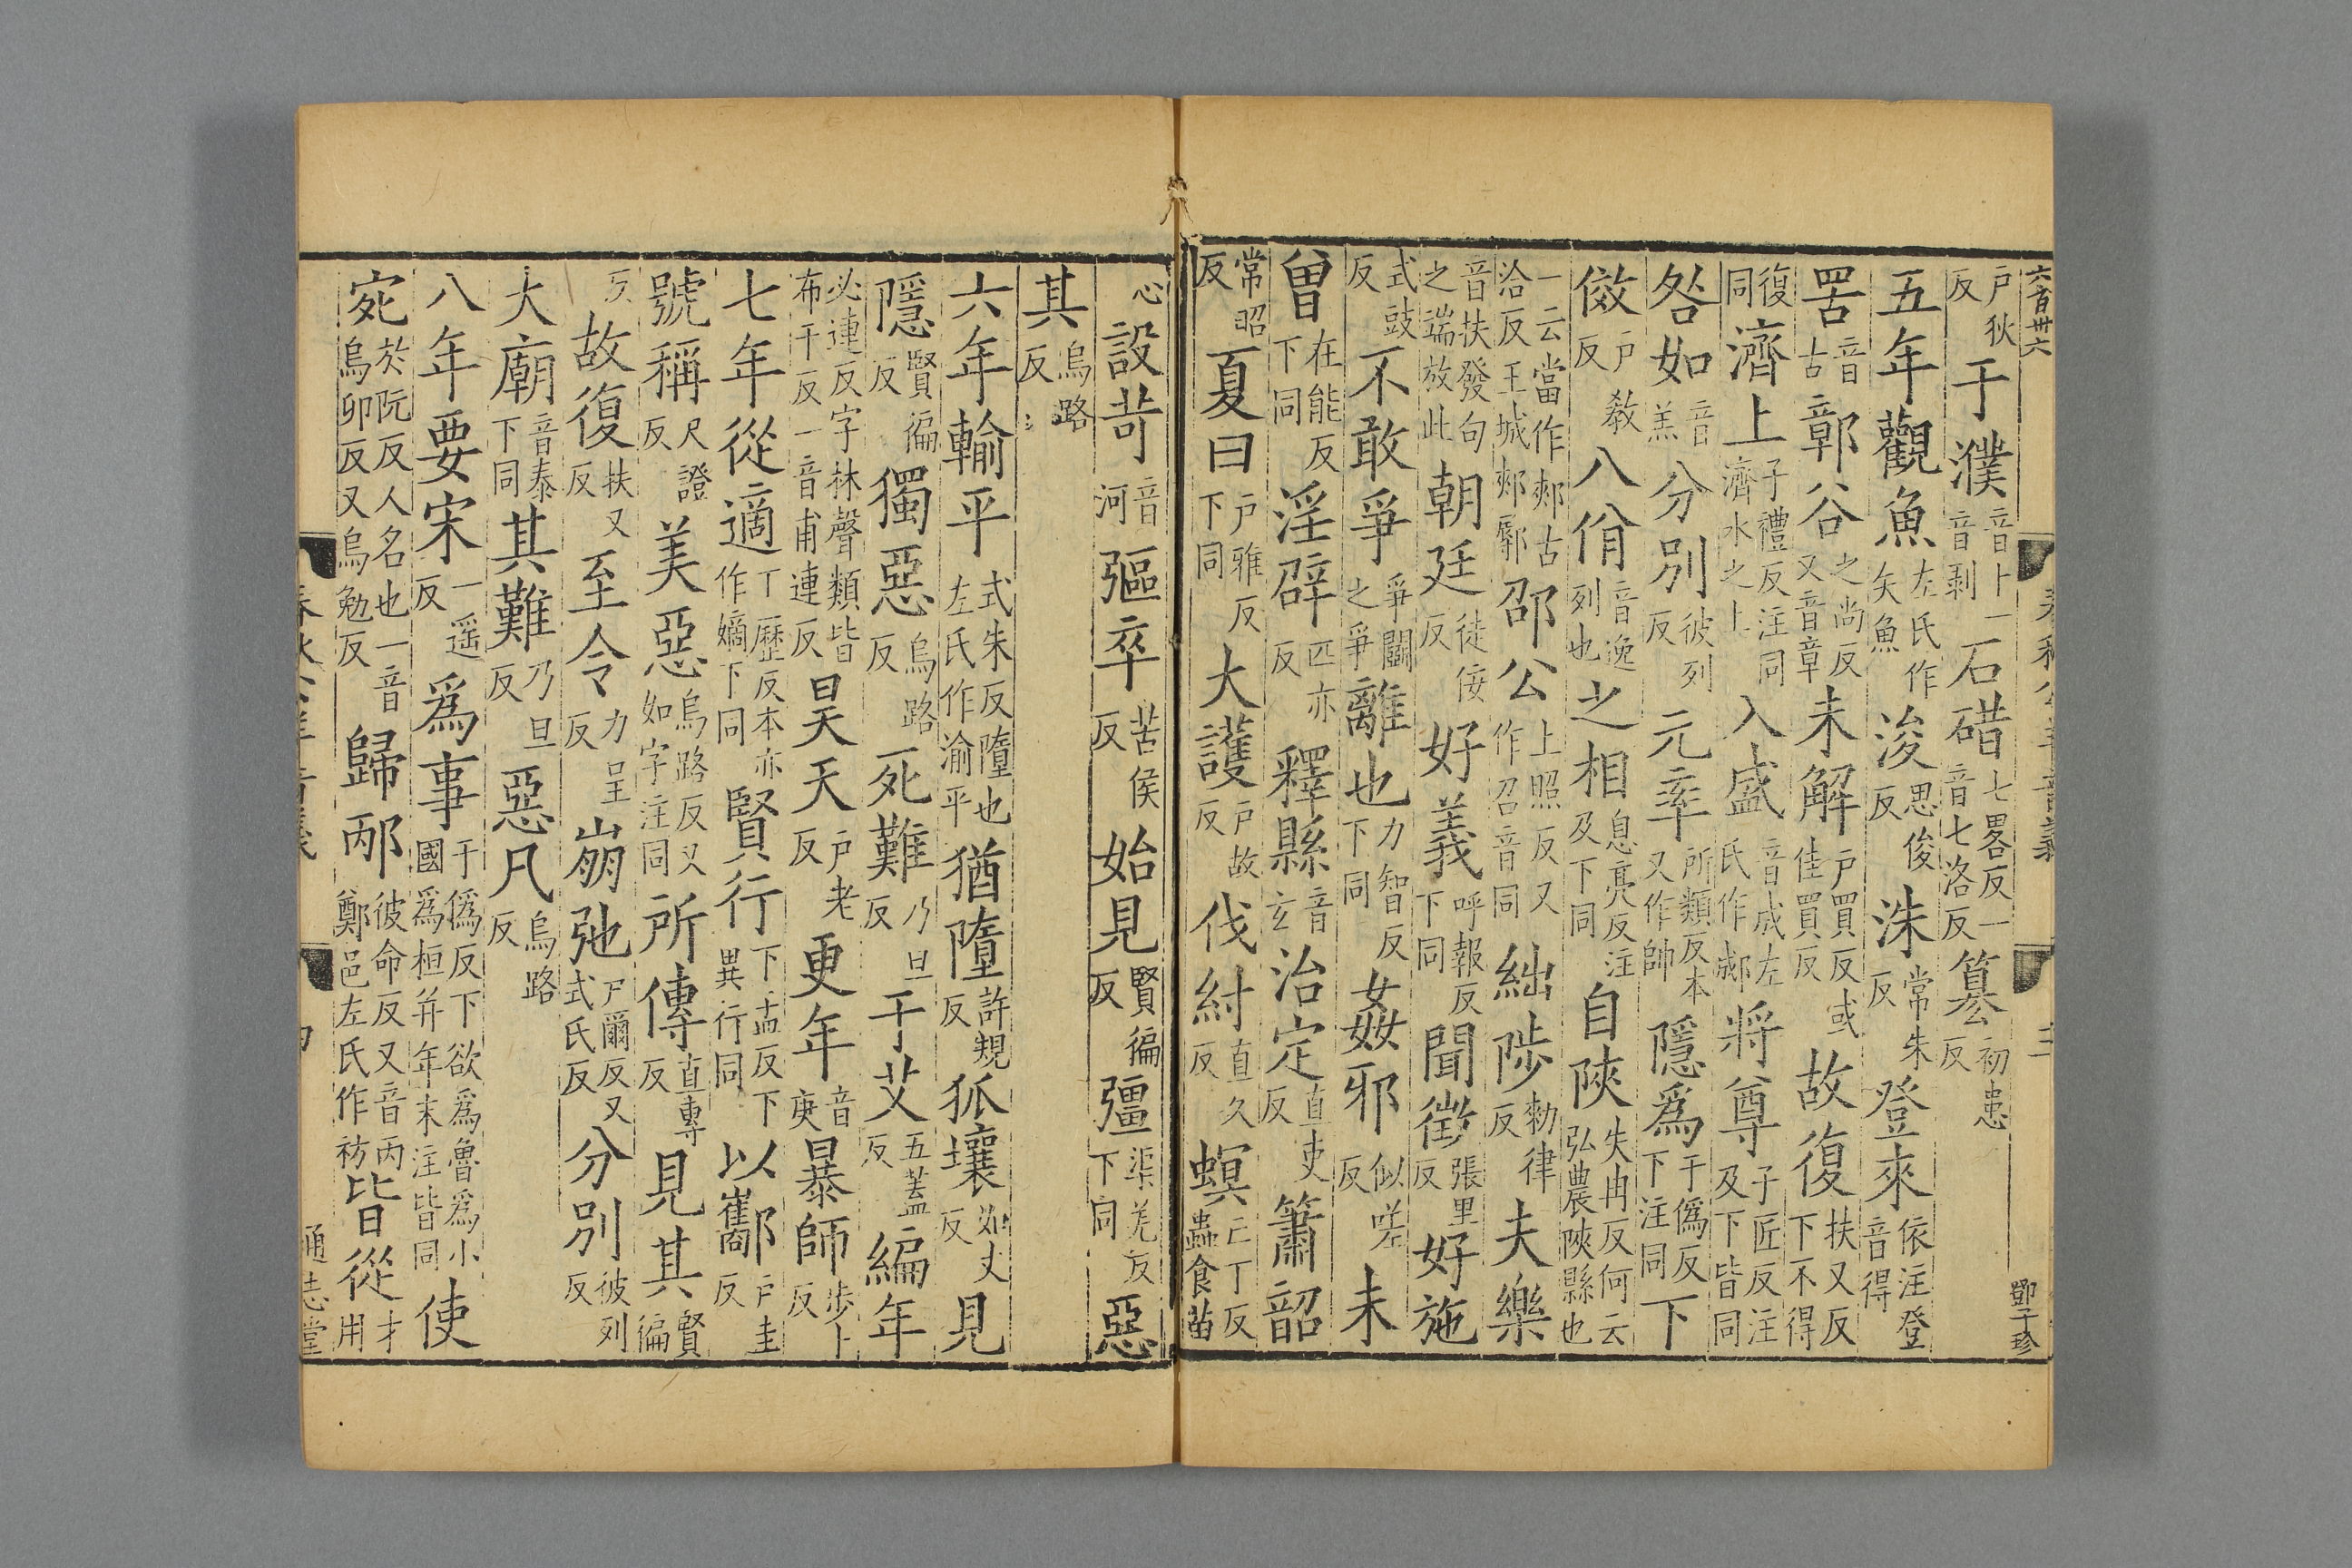 六百卅六
鄧子珍
戶狄反于濮音卜一音剥石碏七畧反一音七洛反篡初患反
五年觀魚左氏作矢魚浚思俊反洙常朱反登來依注登音得
罟音古鄣谷之尚反又音章未解戶買反或佳買反故復扶又反下不得
復同濟上子禮反注同濟水之上入盛音成左氏作郕將尊子匠反注及下皆同
咎如音羔分別彼列反元率所類反本又作帥隱爲于僞反下注同下
傚戶教反八佾音逸列也之相息亮反注及下同自陝失冉反何云弘農陝縣也
一云當作郟古洽反王城郟鄏邵公上照反又作召音同絀陟勑律反夫樂
音扶發句之端放此朝廷徒佞反好義呼報反下同聞徵張里反好施
式豉反不敢爭爭鬭之爭離也力智反下同姦邪似嗟反未
曽在能反下同淫辟匹亦反釋縣音玄治定直吏反簫韶
常昭反夏曰戶雅反下同大護戶故反伐紂直久反螟亡丁反蟲食苗
心設苛音河彄卒苦侯反始見賢徧反彊渠羌反下同惡
其烏路反
六年輸平式朱反隳也左氏作渝平猶隳許規反狐壤如丈反見
隱賢徧反獨惡烏路反死難乃旦反于艾五蓋反編年
必連反字林聲類皆布千反一音甫連反昊天戶老反更年音庚暴師步卜反
七年從適丁歷反本亦作嫡下同賢行下孟反下異行同以酅戶圭反
號稱尺證反美惡烏路反又如字注同所傳直專反見其賢徧
反故復扶又反至令力呈反崩弛尸爾反又式氏反分別彼列反
大廟音泰下同其難乃旦反惡凡烏路反
八年要宋一遥反爲事于僞反下欲爲魯爲小國爲桓并年末注皆同使
宛於阮反人名也一音烏卯反又烏勉反歸邴彼命反又音丙鄭邑左氏作祊皆從才用
通志堂